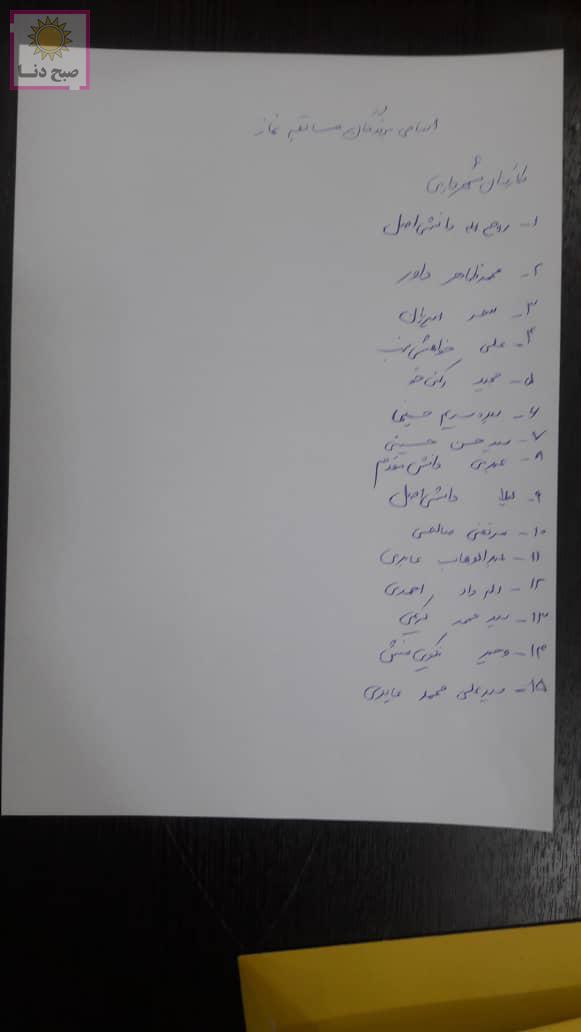 صبح دنا
اسامی برندگان مسابقه نماز
کارمندان شهرداری
۱- روح اله دانشی اصل
۲- محمد طاهر داور
۳- سعد
۴- علی خواهشی نسب
۵- مجید رکنی خو
۶- سیده مریم حسینی
۷- سید حسن حسینی
۸- دانش مقدم
۹- لیلا دانشی اصل
۱۰- مرتضی صالحی
۱۱- عبدالوهاب عابدی
۱۲- اله داد احمدی
۱۳- سید محمد کریمی
۱۴- وحید نکویی منش
۱۵- سید علی محمد عابدی